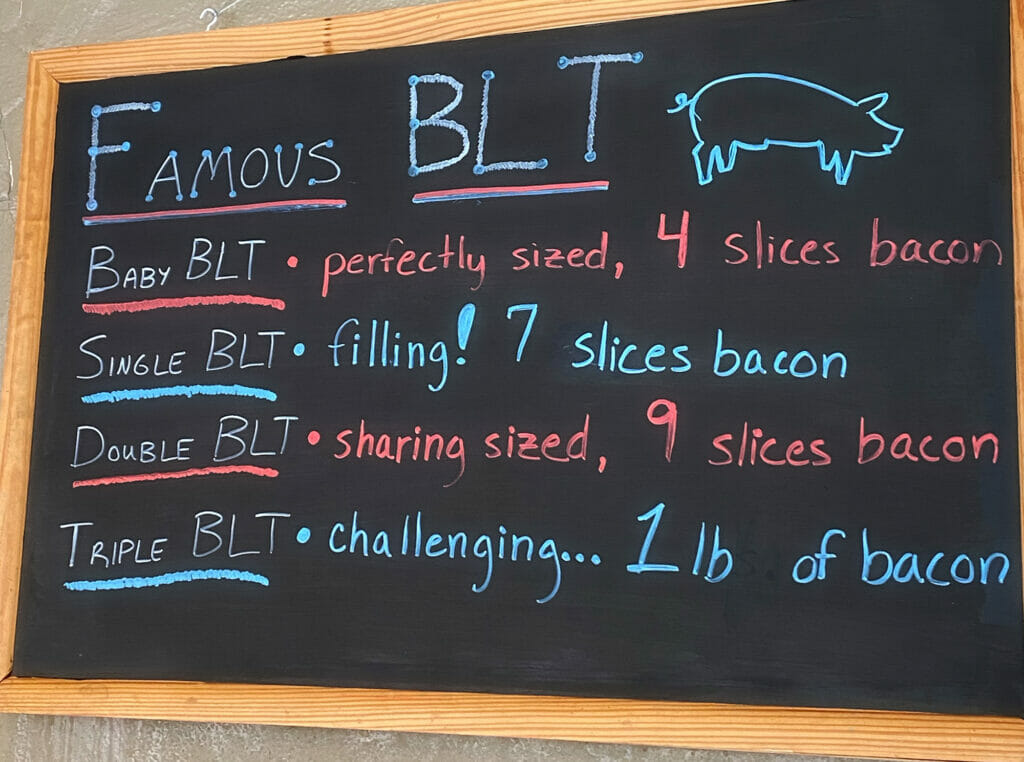 FAMOUS BLT
BABY BLT • perfectly sized, 4 slices bacon
SINGLE BLT • filling! 7 slices bacon
DOUBLE BLT • sharing sized, 9 slices bacon
TRIPLE BLT • challenging... 1 lb of bacon